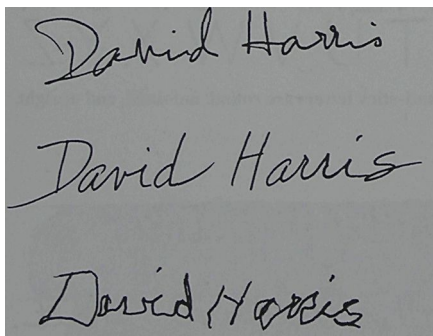 David Harris
David Harris
David Harris